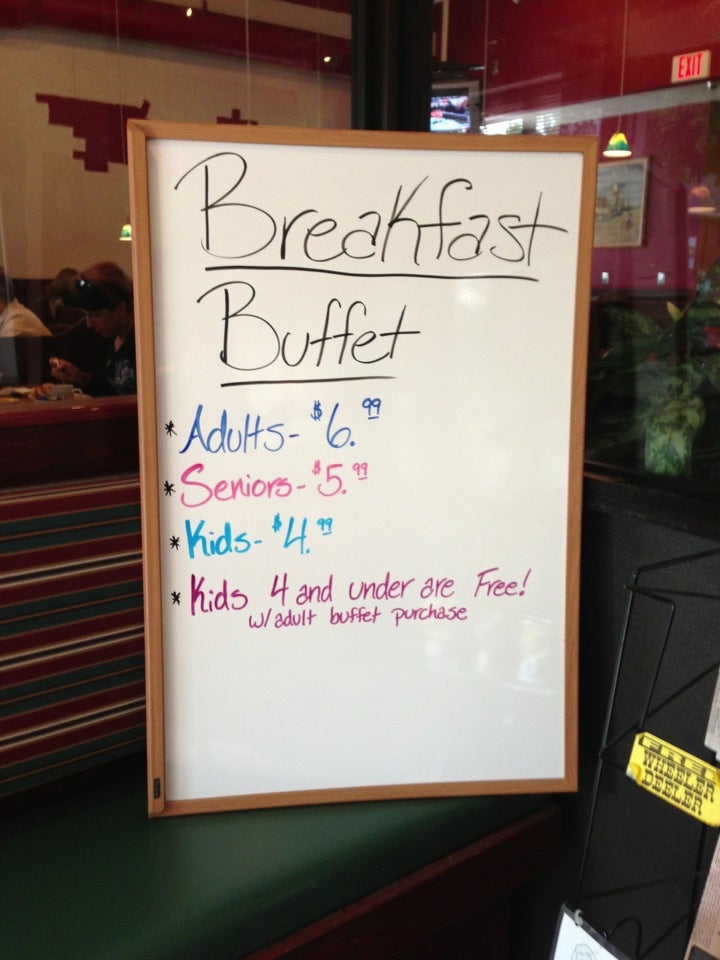 EXIT
Breakfast
Buffet
* Adults - $6.99
* Seniors - $5.99
* Kids - $4.99
* Kids 4 and under are Free!
w/ adult buffet purchase
FREE
WHEELER
DEELER